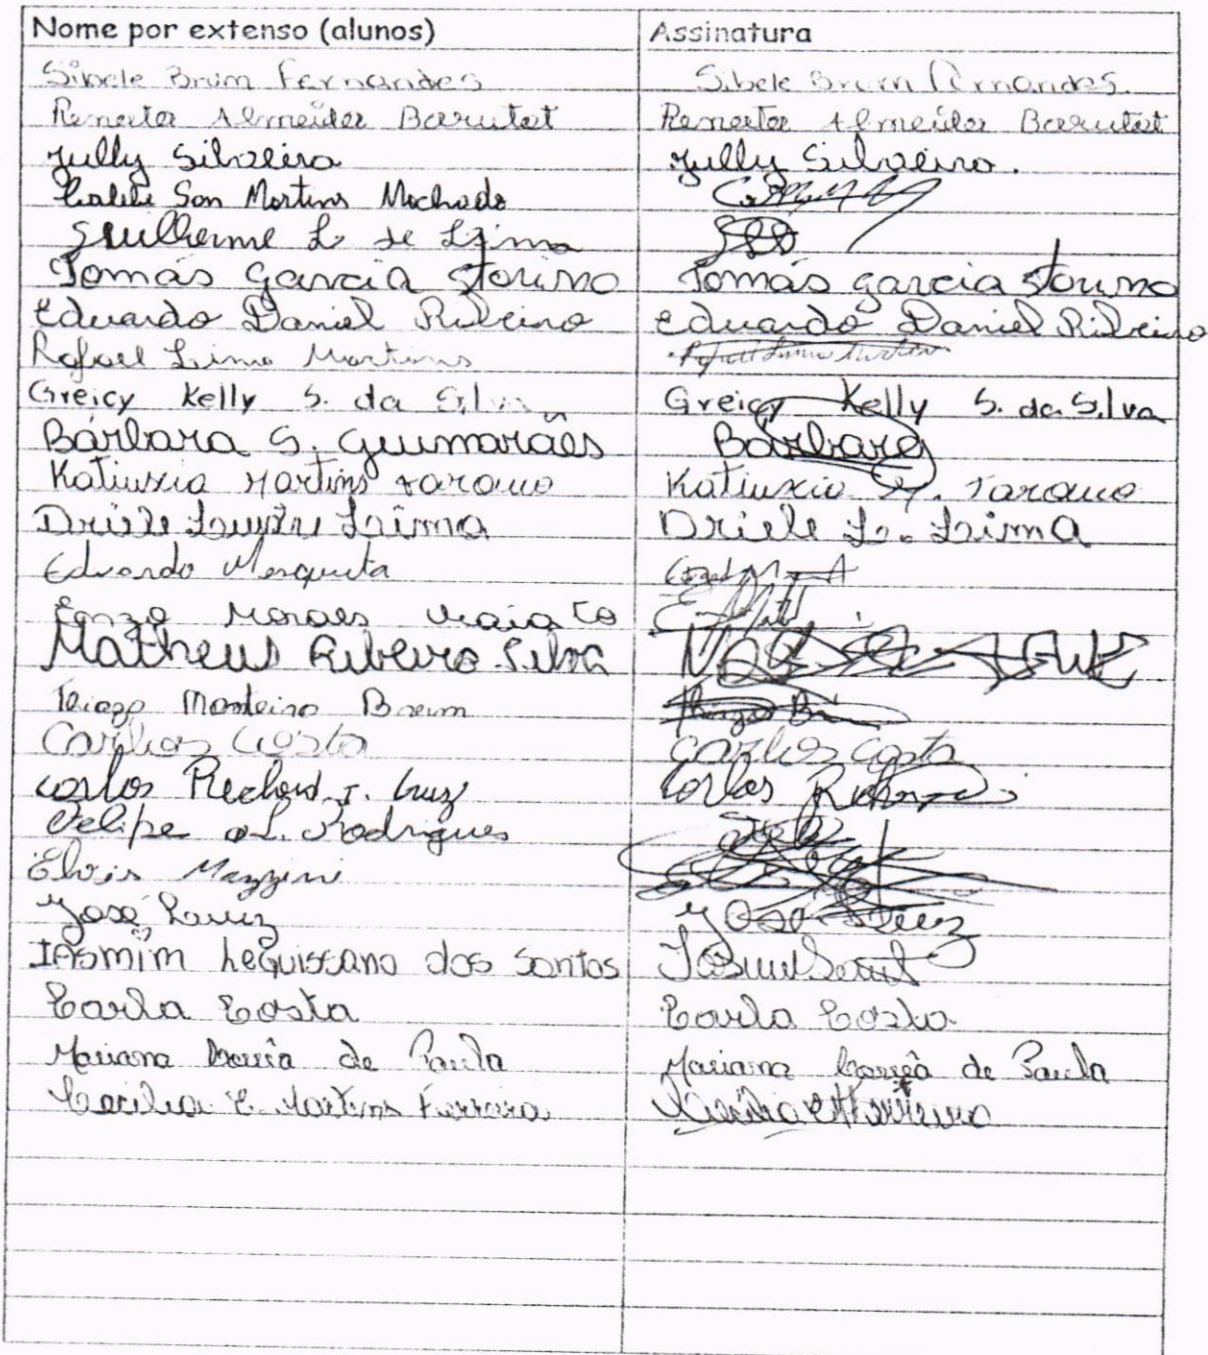 Nome por extenso (alunos) Assinatura
Sibele Brum Fernandes Sibele Brum Fernandes.
Renata Almeida Barutot Renata Almeida Barutot
Jully Silveira Jully Silveira.
San Martins Machado
Guilherme L. de Lima
Tomás Garcia Storino Tomás Garcia Storino
Eduardo Daniel Ribeiro Eduardo Daniel Ribeiro
Rafael Lima Martins Rafael Lima Martins
Greicy Kelly S. da Silva Greicy Kelly S. da Silva
Bárbara S. Guimarães Bárbara
Katiuxia Martins Tarouco Katiuxia M. Tarouco
Driele Lima Driele L. Lima
Eduardo Mesquita
Enzo Moraes
Matheus Ribeiro Silva
Thiago Monteiro Brum Thiago
Carlos Costa Carlos Costa
Carlos Richard J. Cruz Carlos
Felipe L. Rodrigues
Elvis Mazzini
José Luiz José Luiz
IASmim Leguissamo dos Santos
Carla Costa Carla Costa
Mariana Corrêa de Paula Mariana Corrêa de Paula
Cecilia E. Martins Ferreira